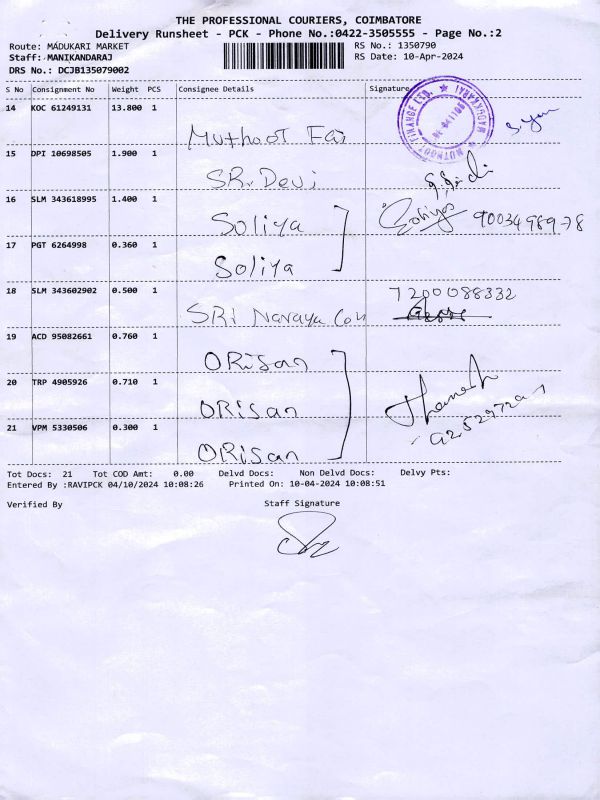 THE PROFESSIONAL COURIERS, COIMBATORE
Delivery Runsheet - PCK - Phone No.:0422-3505555 - Page No.:2
Route: MADUKARI MARKET RS No.: 1350790
Staff: MANIKANDARAJ RS Date: 10-Apr-2024
DRS No.: DCJB135079002
S No Consignment No Weight PCS Consignee Details Signature
14 KOC 61249131 13.800 1 Muthoot Fai
15 DPI 10698505 1.900 1 SR. Devi
16 SLM 343618995 1.400 1 Soliya 9003498978
17 PGT 6264998 0.360 1 Soliya
18 SLM 343602902 0.500 1 SRI Naraya Con 7200088332
19 ACD 95082661 0.760 1 ORisan
20 TRP 4905926 0.710 1 ORisan
21 VPM 5330506 0.300 1 ORisan
Tot Docs: 21 Tot COD Amt: 0.00 Delvd Docs: Non Delvd Docs: Delvy Pts:
Entered By :RAVIPCK 04/10/2024 10:08:26 Printed On: 10-04-2024 10:08:51
Verified By Staff Signature